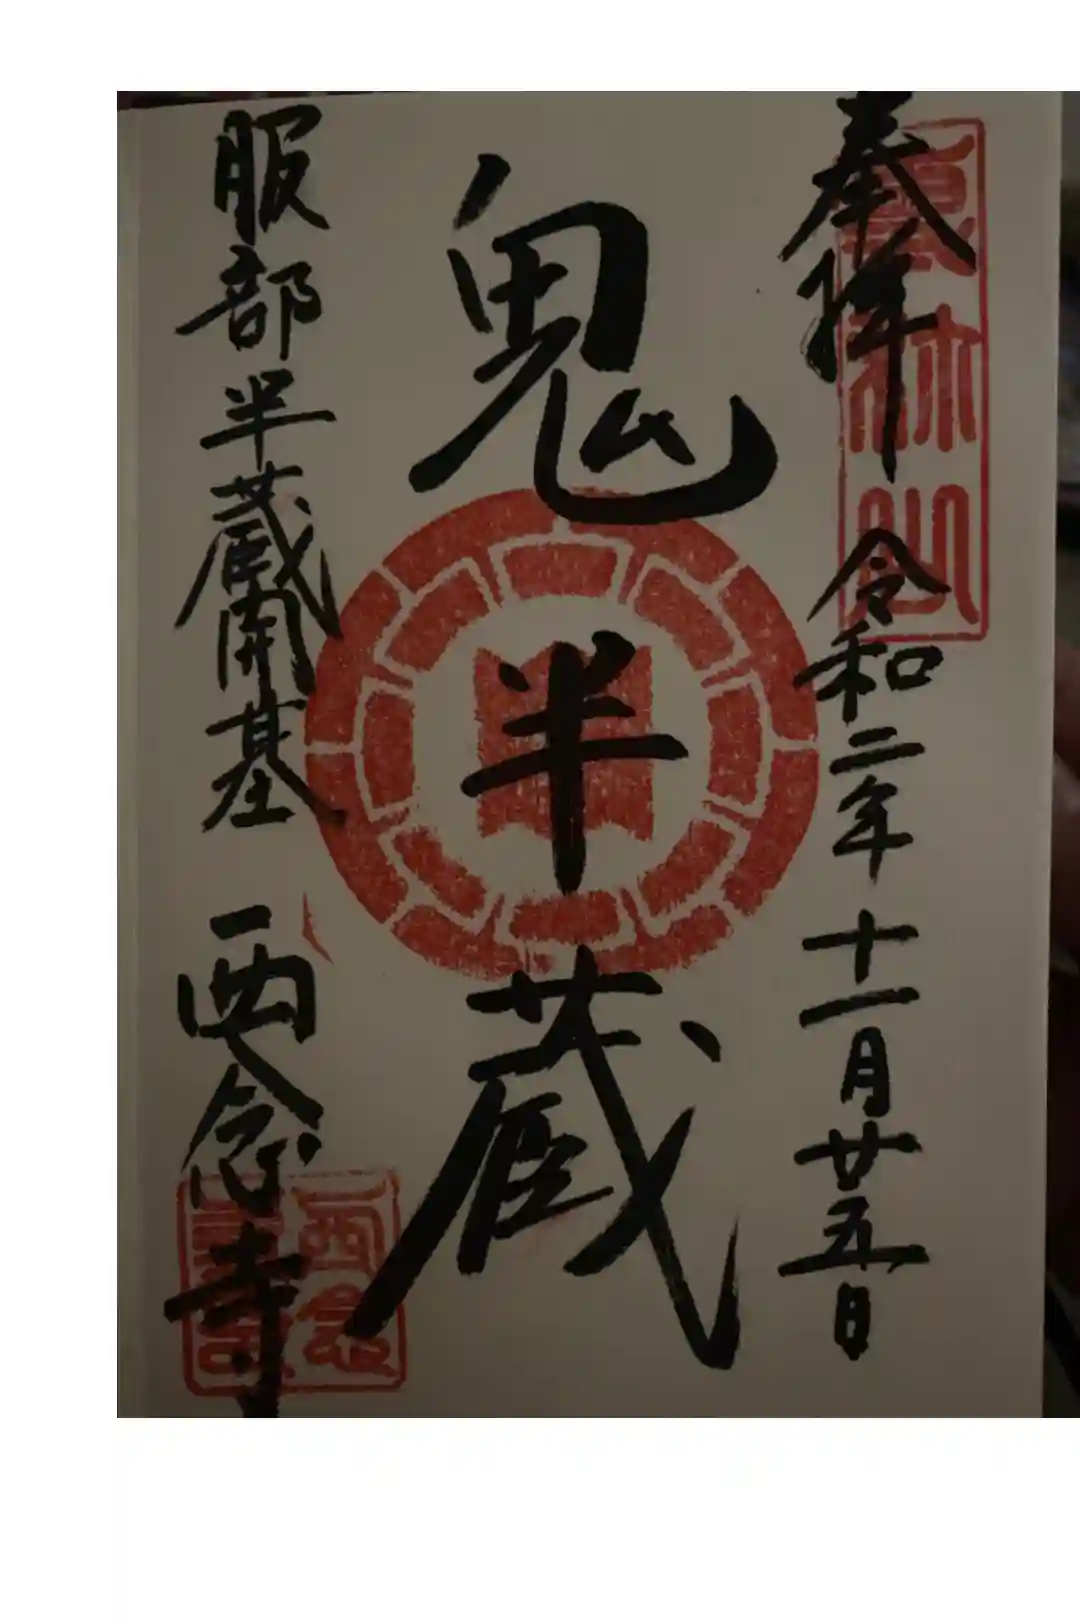 奉拝
令和二年十一月廿五日
鬼半蔵
服部半蔵開基
西念寺
西念